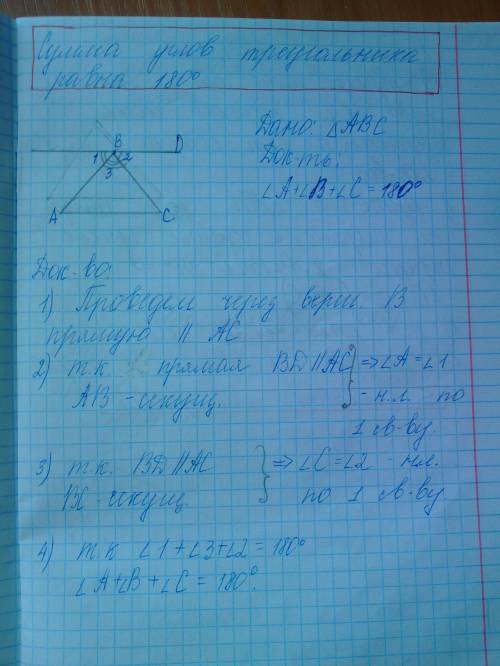 Сумма углов треугольника
равна 180°
Дано: △ABC
Док-ть:
∠A+∠B+∠C=180°
B
D
1
2
3
A
C
Док-во:
1) Проведём через верш. B
прямую || AC
2) т.к. прямая BD||AC } => ∠A=∠1
AB - секущ. - н.л. по
1 св-ву
3) т.к. BD||AC } => ∠C=∠2 - н.л.
BC - секущ. по 1 св-ву
4) т.к ∠1+∠3+∠2=180°
∠A+∠B+∠C=180°.